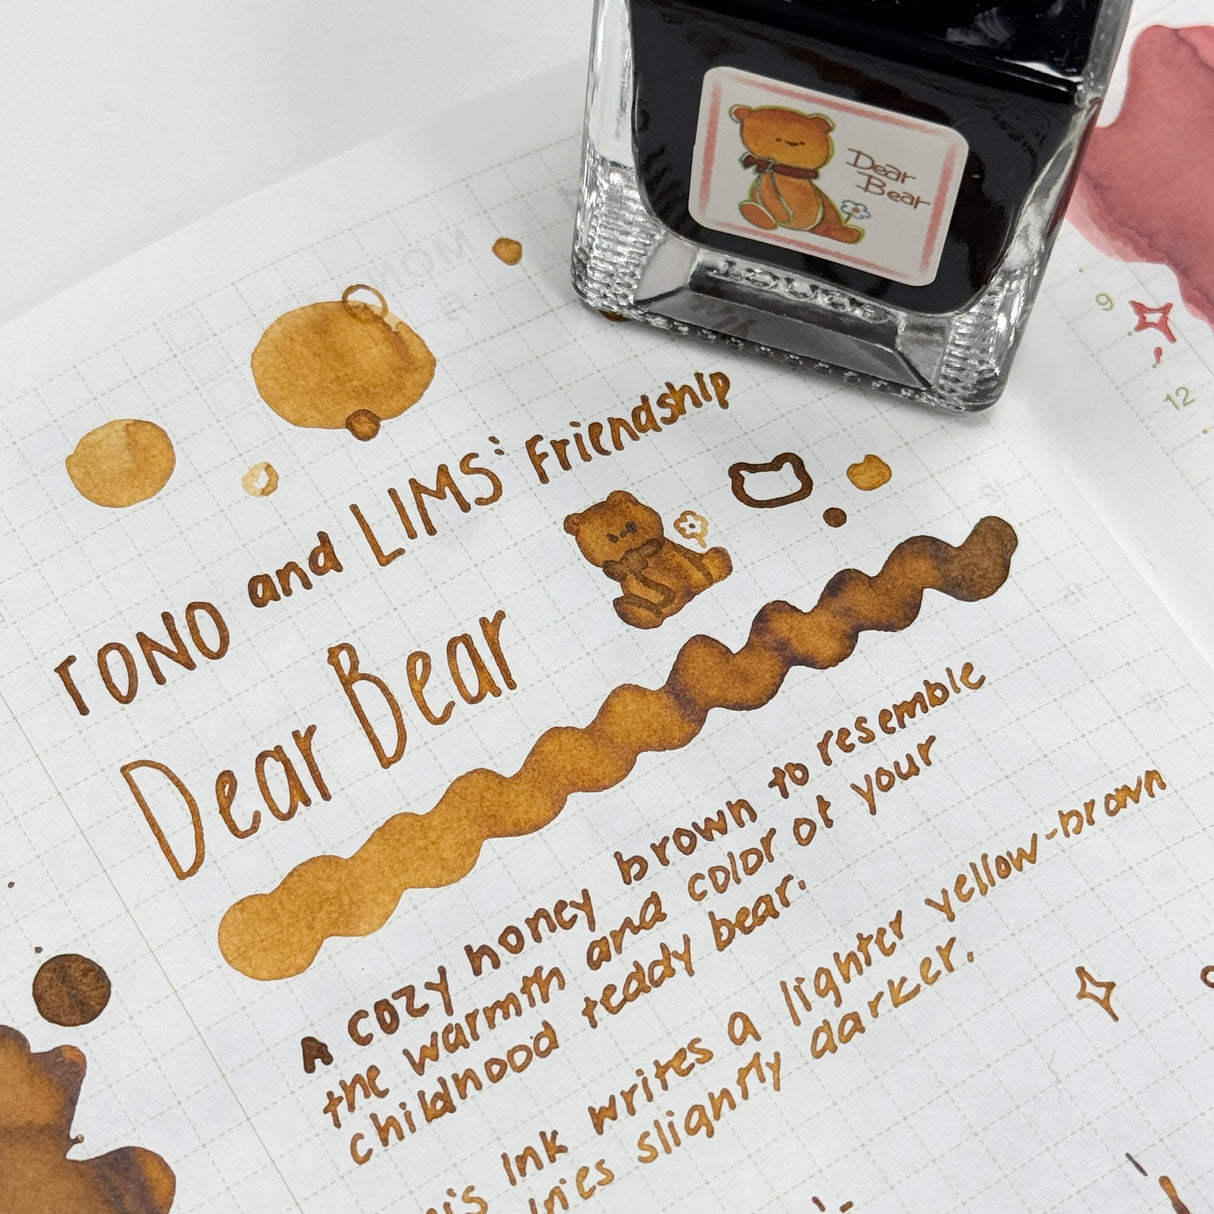 Dear
Bear
TONO and LIMS: Friendship
Dear Bear
A cozy honey brown to resemble
the warmth and color of your
childhood teddy bear.
ink writes a lighter yellow-brown
slightly darker.
9
12